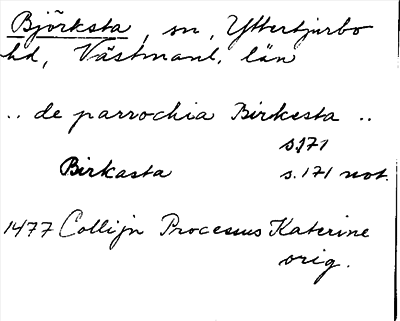 Björksta, sn, Yttertjurbo
hd, Västmanl. län
.. de parrochia Birkesta ..
s.171
Birkasta s. 171 not.
1477 Collijn Processus Katerine
orig.